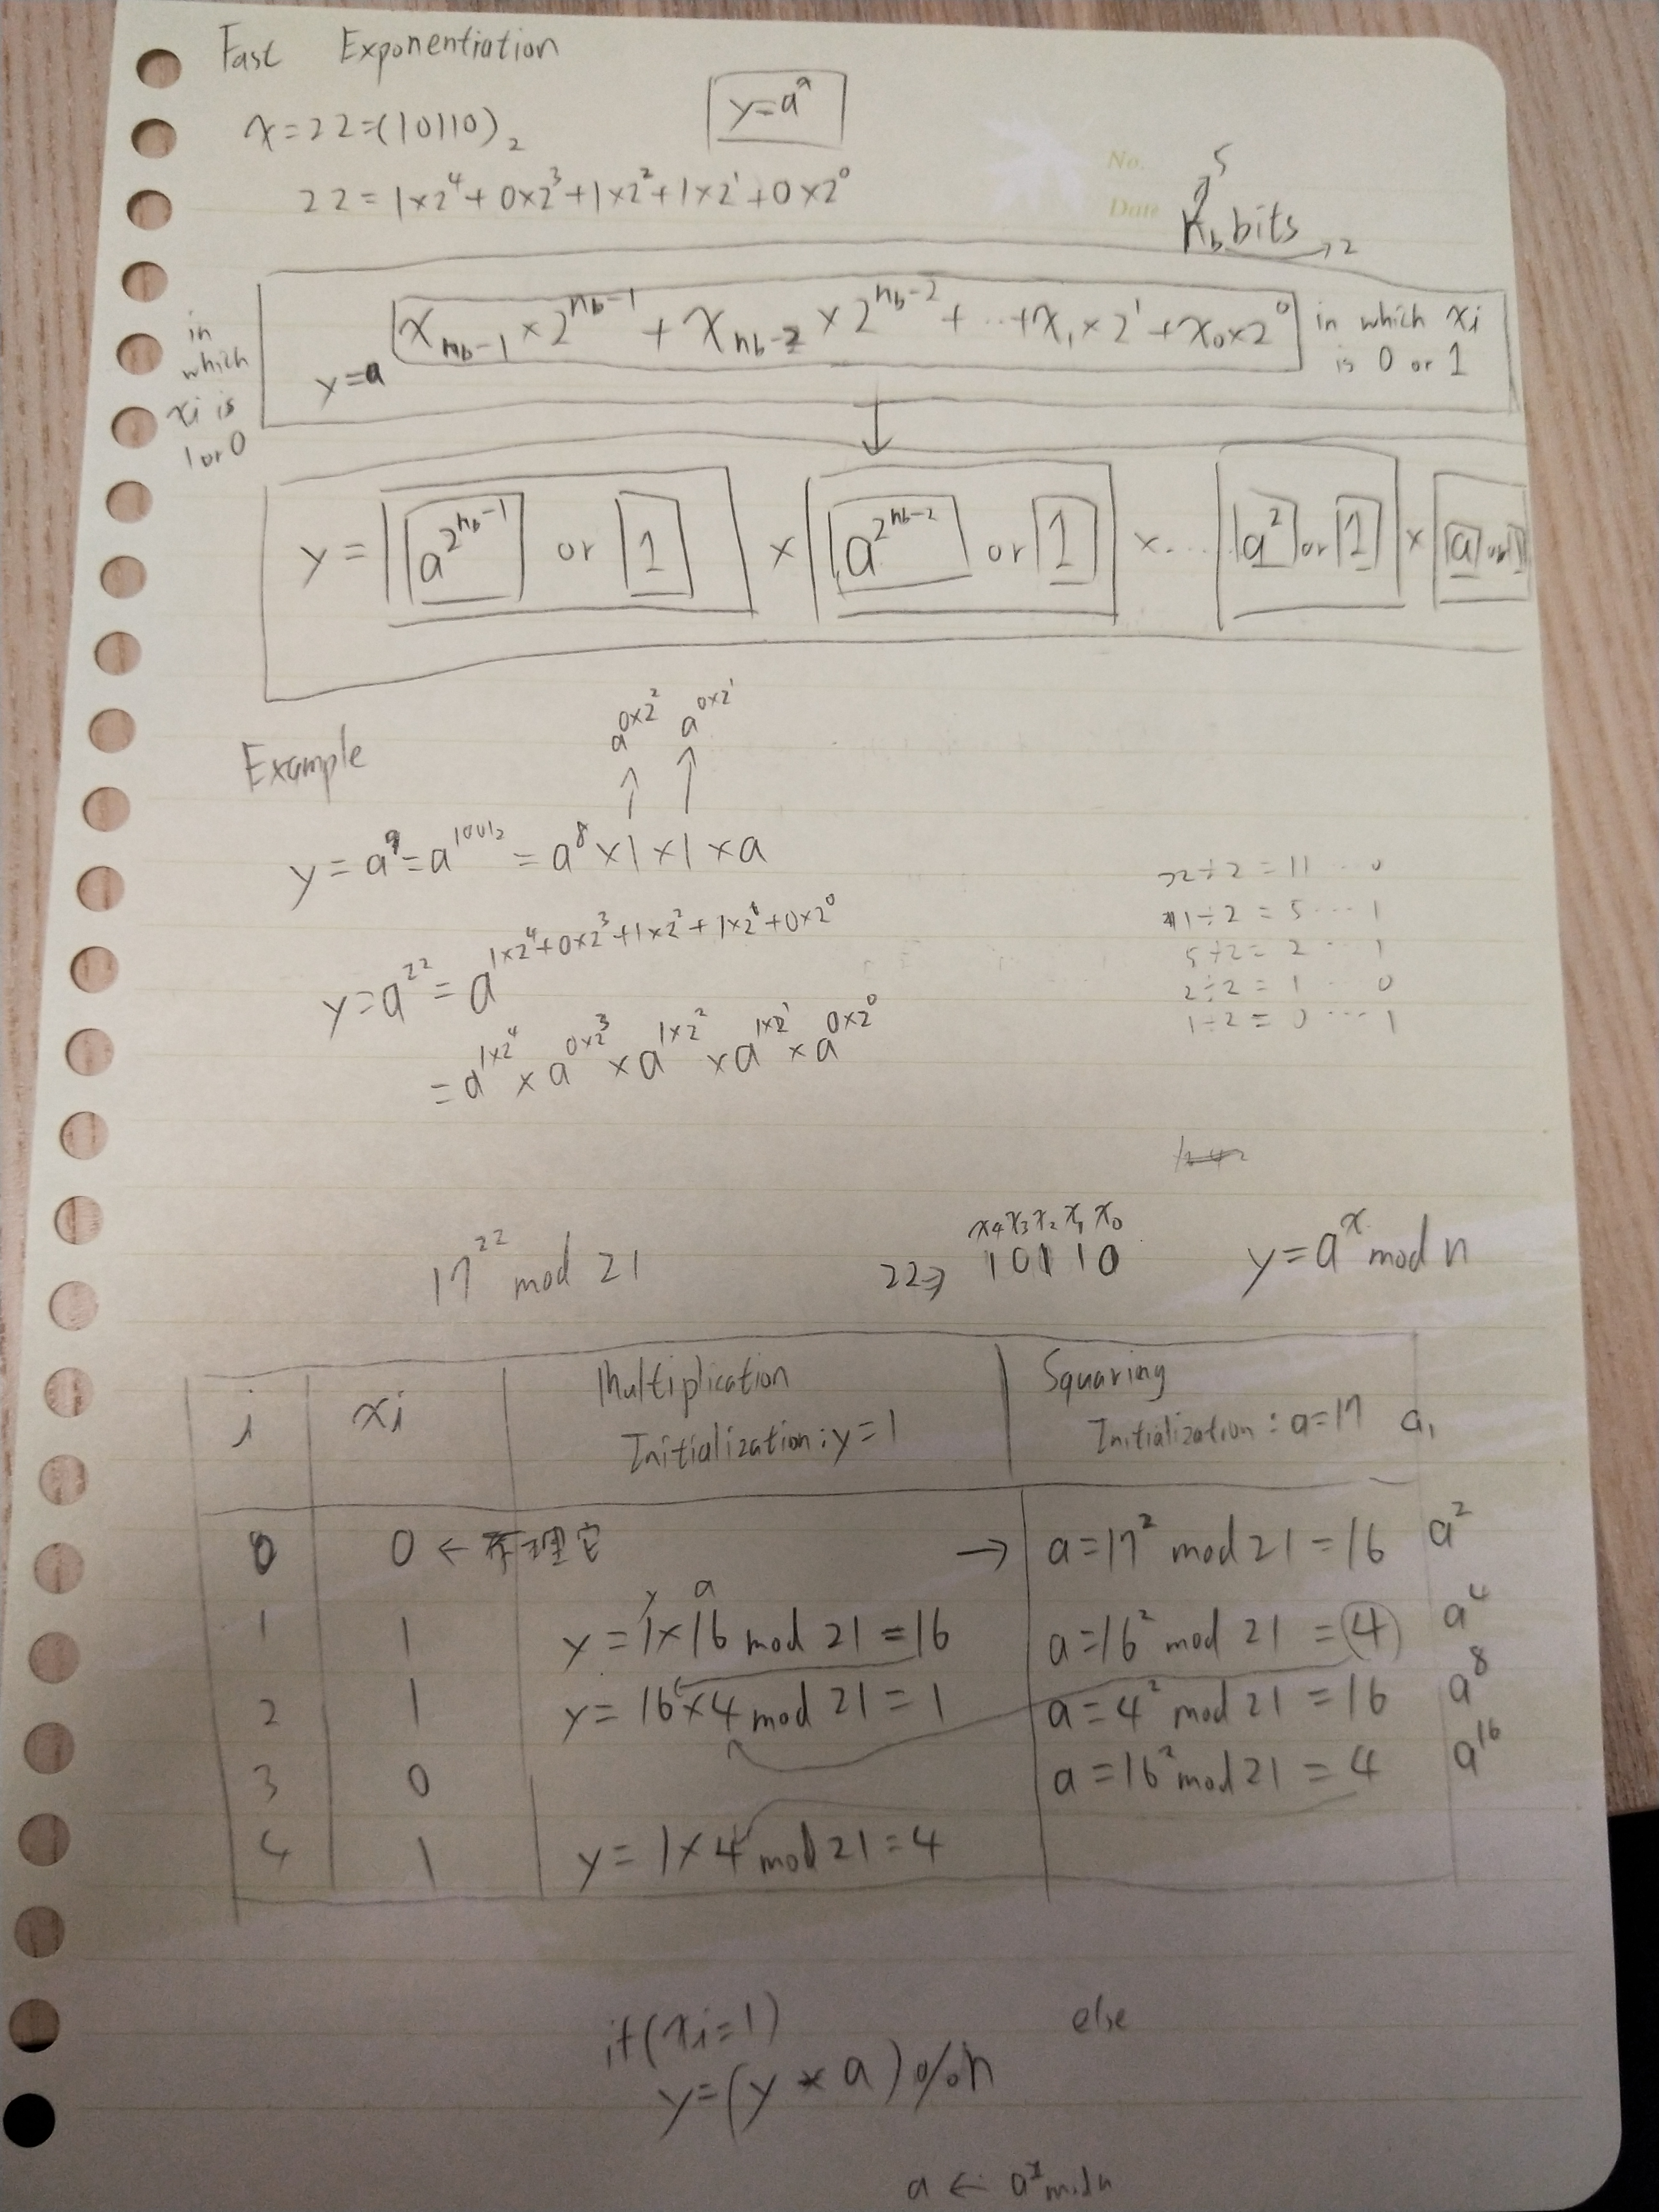 Fast Exponentiation
x=22=(10110)₂
y=aˣ
22=1×2⁴+0×2³+1×2²+1×2¹+0×2⁰
No.
Date
5
n_b bits → 2
in which xi is 1 or 0
y=a^(x_(n_b-1)×2^(n_b-1)+x_(n_b-2)×2^(n_b-2)+...+x₁×2¹+x₀×2⁰) in which xi is 0 or 1
↓
y= a^(2^(n_b-1)) or 1 × a^(2^(n_b-2)) or 1 ×.... a² or 1 × a or 1
a^(0×2²) a^(0×2¹)
Example
↑ ↑
y=a⁹=a^(1001₂)=a⁸×1×1×a
y=a²²=a^(1×2⁴+0×2³+1×2²+1×2¹+0×2⁰)
=a^(1×2⁴)×a^(0×2³)×a^(1×2²)×a^(1×2¹)×a^(0×2⁰)
22÷2=11...0
11÷2=5...1
5÷2=2...1
2÷2=1...0
1÷2=0...1
17²² mod 21
x₄x₃x₂x₁x₀
22⇒ 10110
y=aˣ mod n
i xi Multiplication Initialization:y=1 Squaring Initialization:a=17 a₁
0 0 ← 不理它 → a=17² mod 21=16 a²
y a
1 1 y=1×16 mod 21=16 a=16² mod 21=4 a⁴
2 1 y=16×4 mod 21=1 a=4² mod 21=16 a⁸
3 0 a=16² mod 21=4 a¹⁶
4 1 y=1×4 mod 21=4
if(xi=1) else
y=(y*a)%n
a ← a² mod n